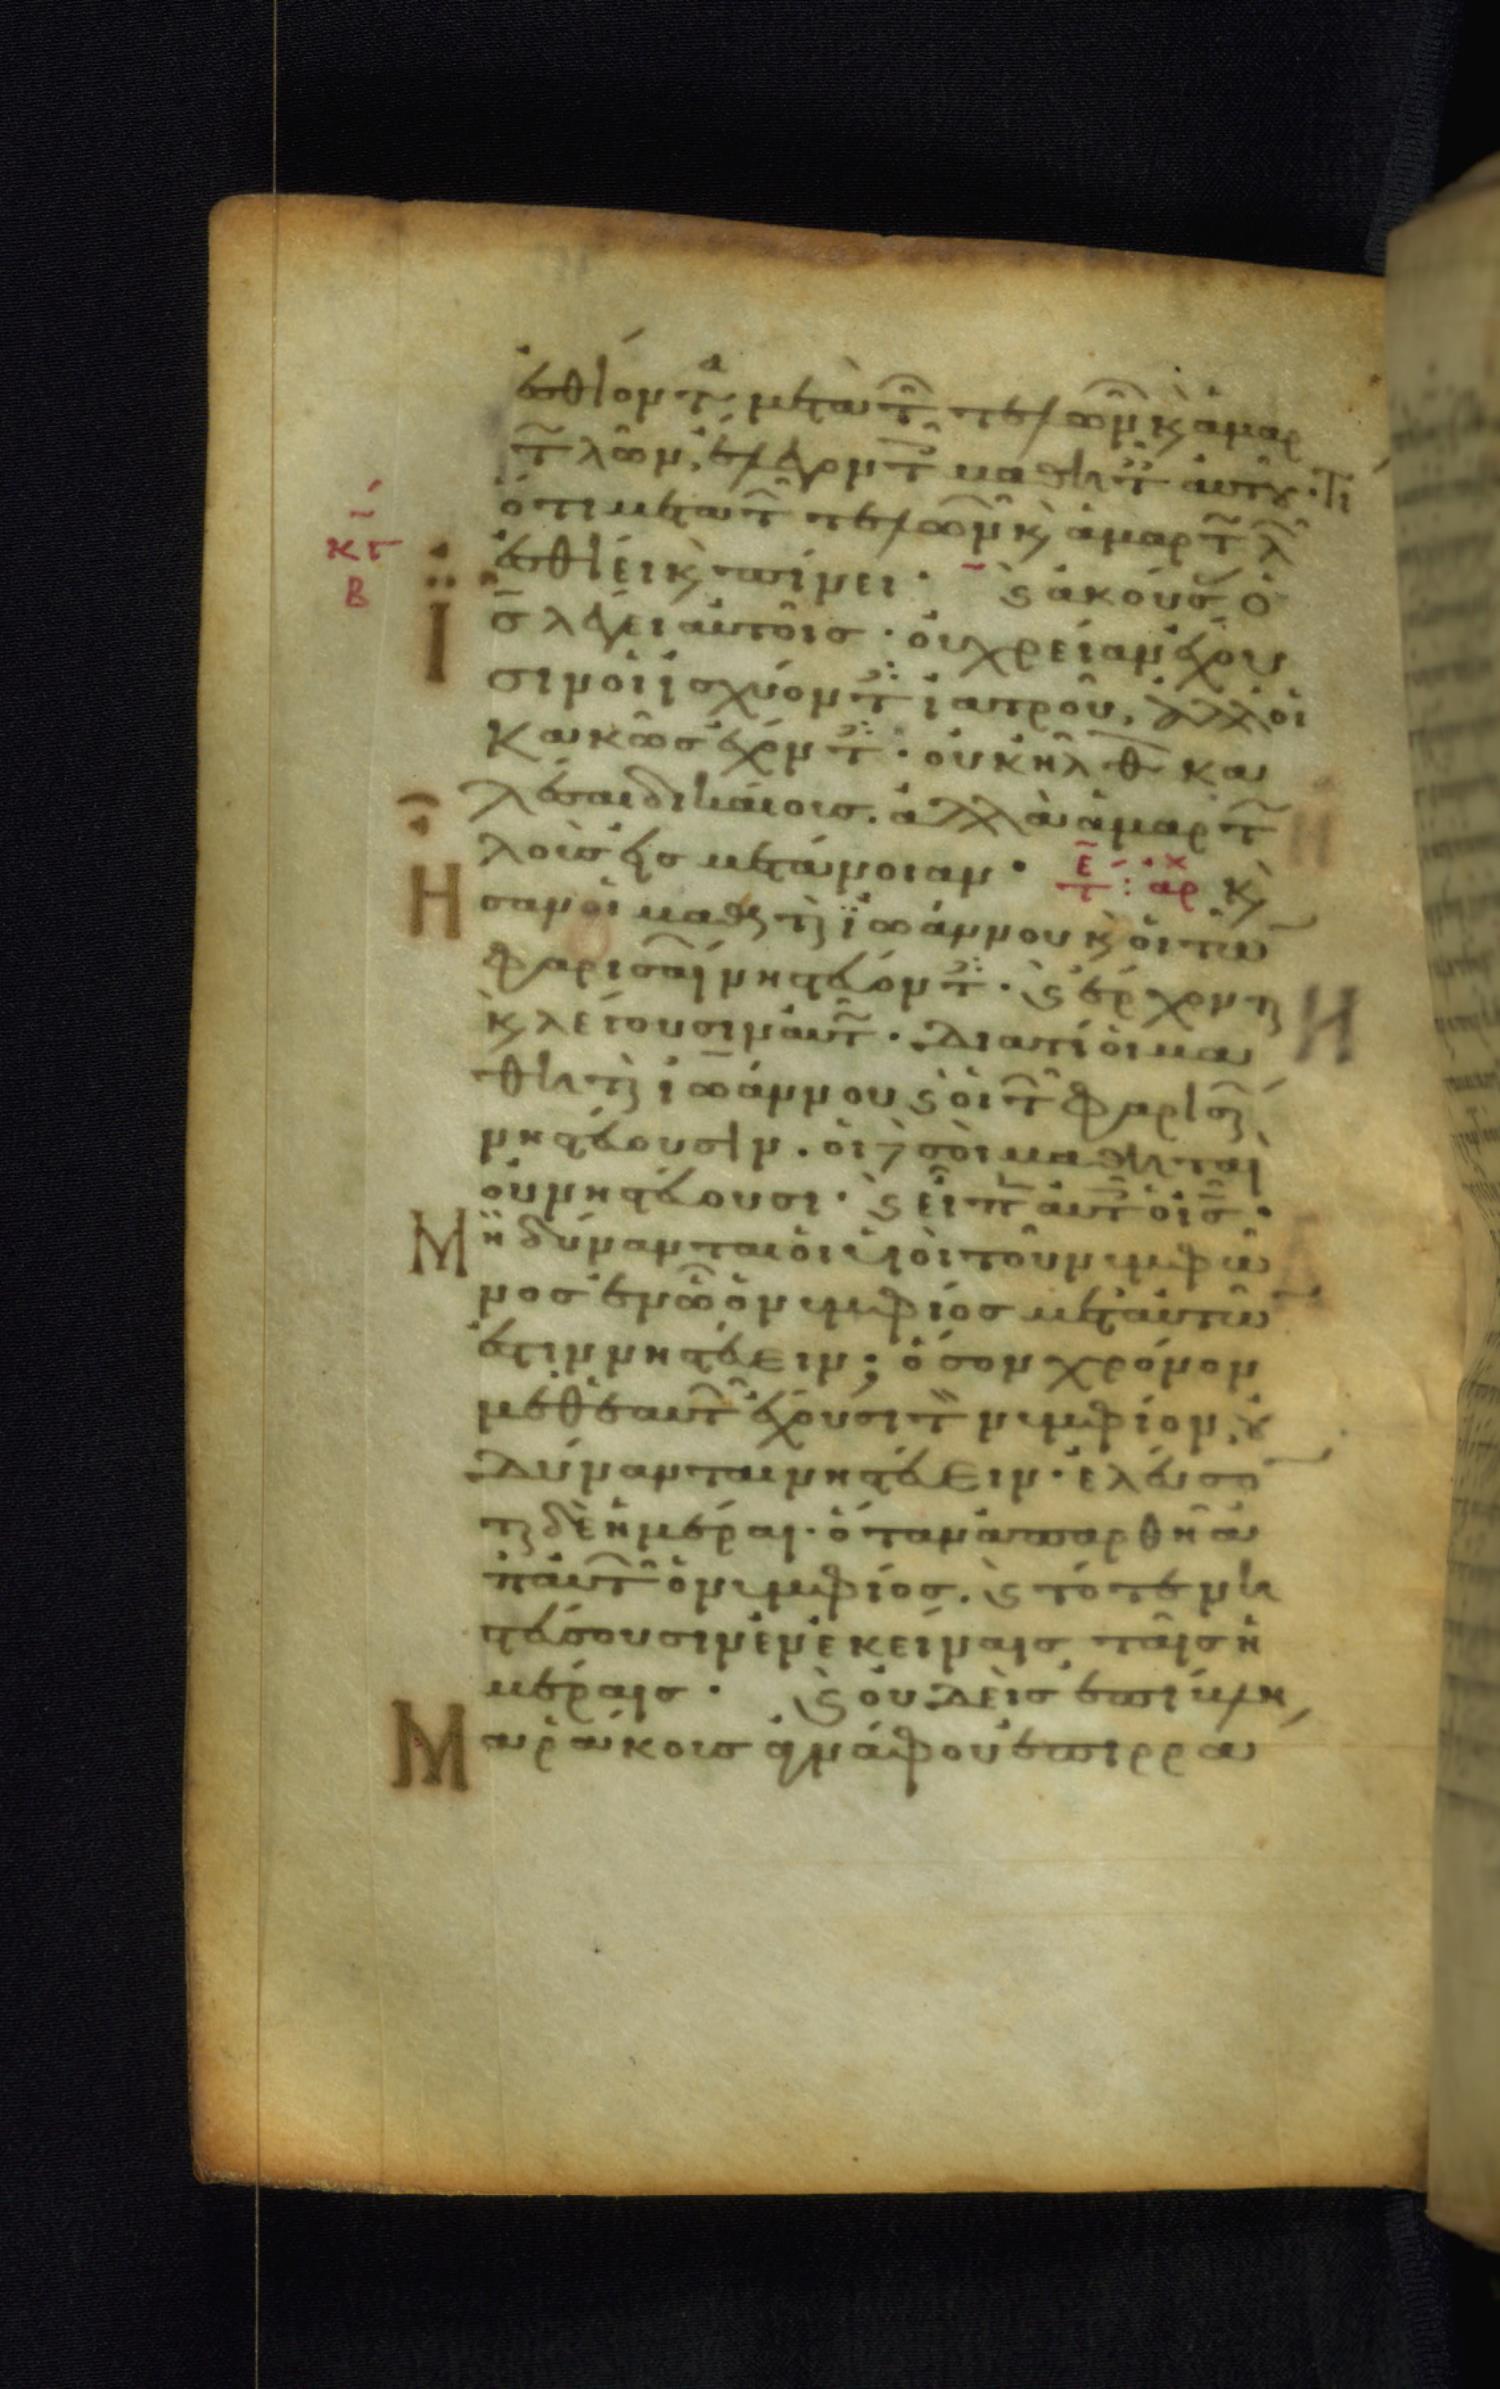 ἐσθίοντα μετὰ τῶν τελωνῶν κ ἁμαρ
τωλῶν, ἔλεγον τοῖς μαθηταῖς αὐτοῦ· τί
ὅτι μετὰ τῶν τελωνῶν κ ἁμαρτωλῶν
κγ
β
ἐσθίει κ πίνει· κ ἀκούσας ὁ
ις λέγει αὐτοῖς· οὐ χρείαν ἔχου
σιν οἱ ἰσχύοντες ἰατροῦ, ἀλλ οἱ
κακῶς ἔχοντες· οὐκ ἦλθον κα
λέσαι δικαίους. ἀλλὰ ἁμαρτω
λοὺς εἰς μετάνοιαν· τε αρχ κ
Ησαν οἱ μαθηταὶ ἰωάννου κ οἱ τῶν
φαρισαίων νηστεύοντες· κ ἔρχονται
κ λέγουσιν αὐτῶ· διατί οἱ μα
θηταὶ ἰωάννου κ οἱ τῶν φαρισαίων
νηστεύουσιν. οἱ δὲ σοὶ μαθηταὶ
οὐ νηστεύουσι· κ εἶπεν αὐτοῖς ὁ ις·
Μὴ δύνανται οἱ υἱοὶ τοῦ νυμφῶ
νος ἐν ὧ ὁ νυμφίος μετ αὐτῶν
ἐστιν νηστεύειν; ὅσον χρόνον
μεθ ἑαυτῶν ἔχουσι τὸν νυμφίον, οὐ
δύνανται νηστεύειν· ἐλεύσον
ται δὲ ἡμέραι· ὅταν ἀπαρθῆ ἀ
π αὐτῶν ὁ νυμφίος. κ τότε νη
στεύσουσιν ἐν ἐκείναις ταῖς ἡ
μέραις· κ οὐδεὶς ἐπίβλη
Μα ῥάκους ἀγνάφου ἐπιρρά